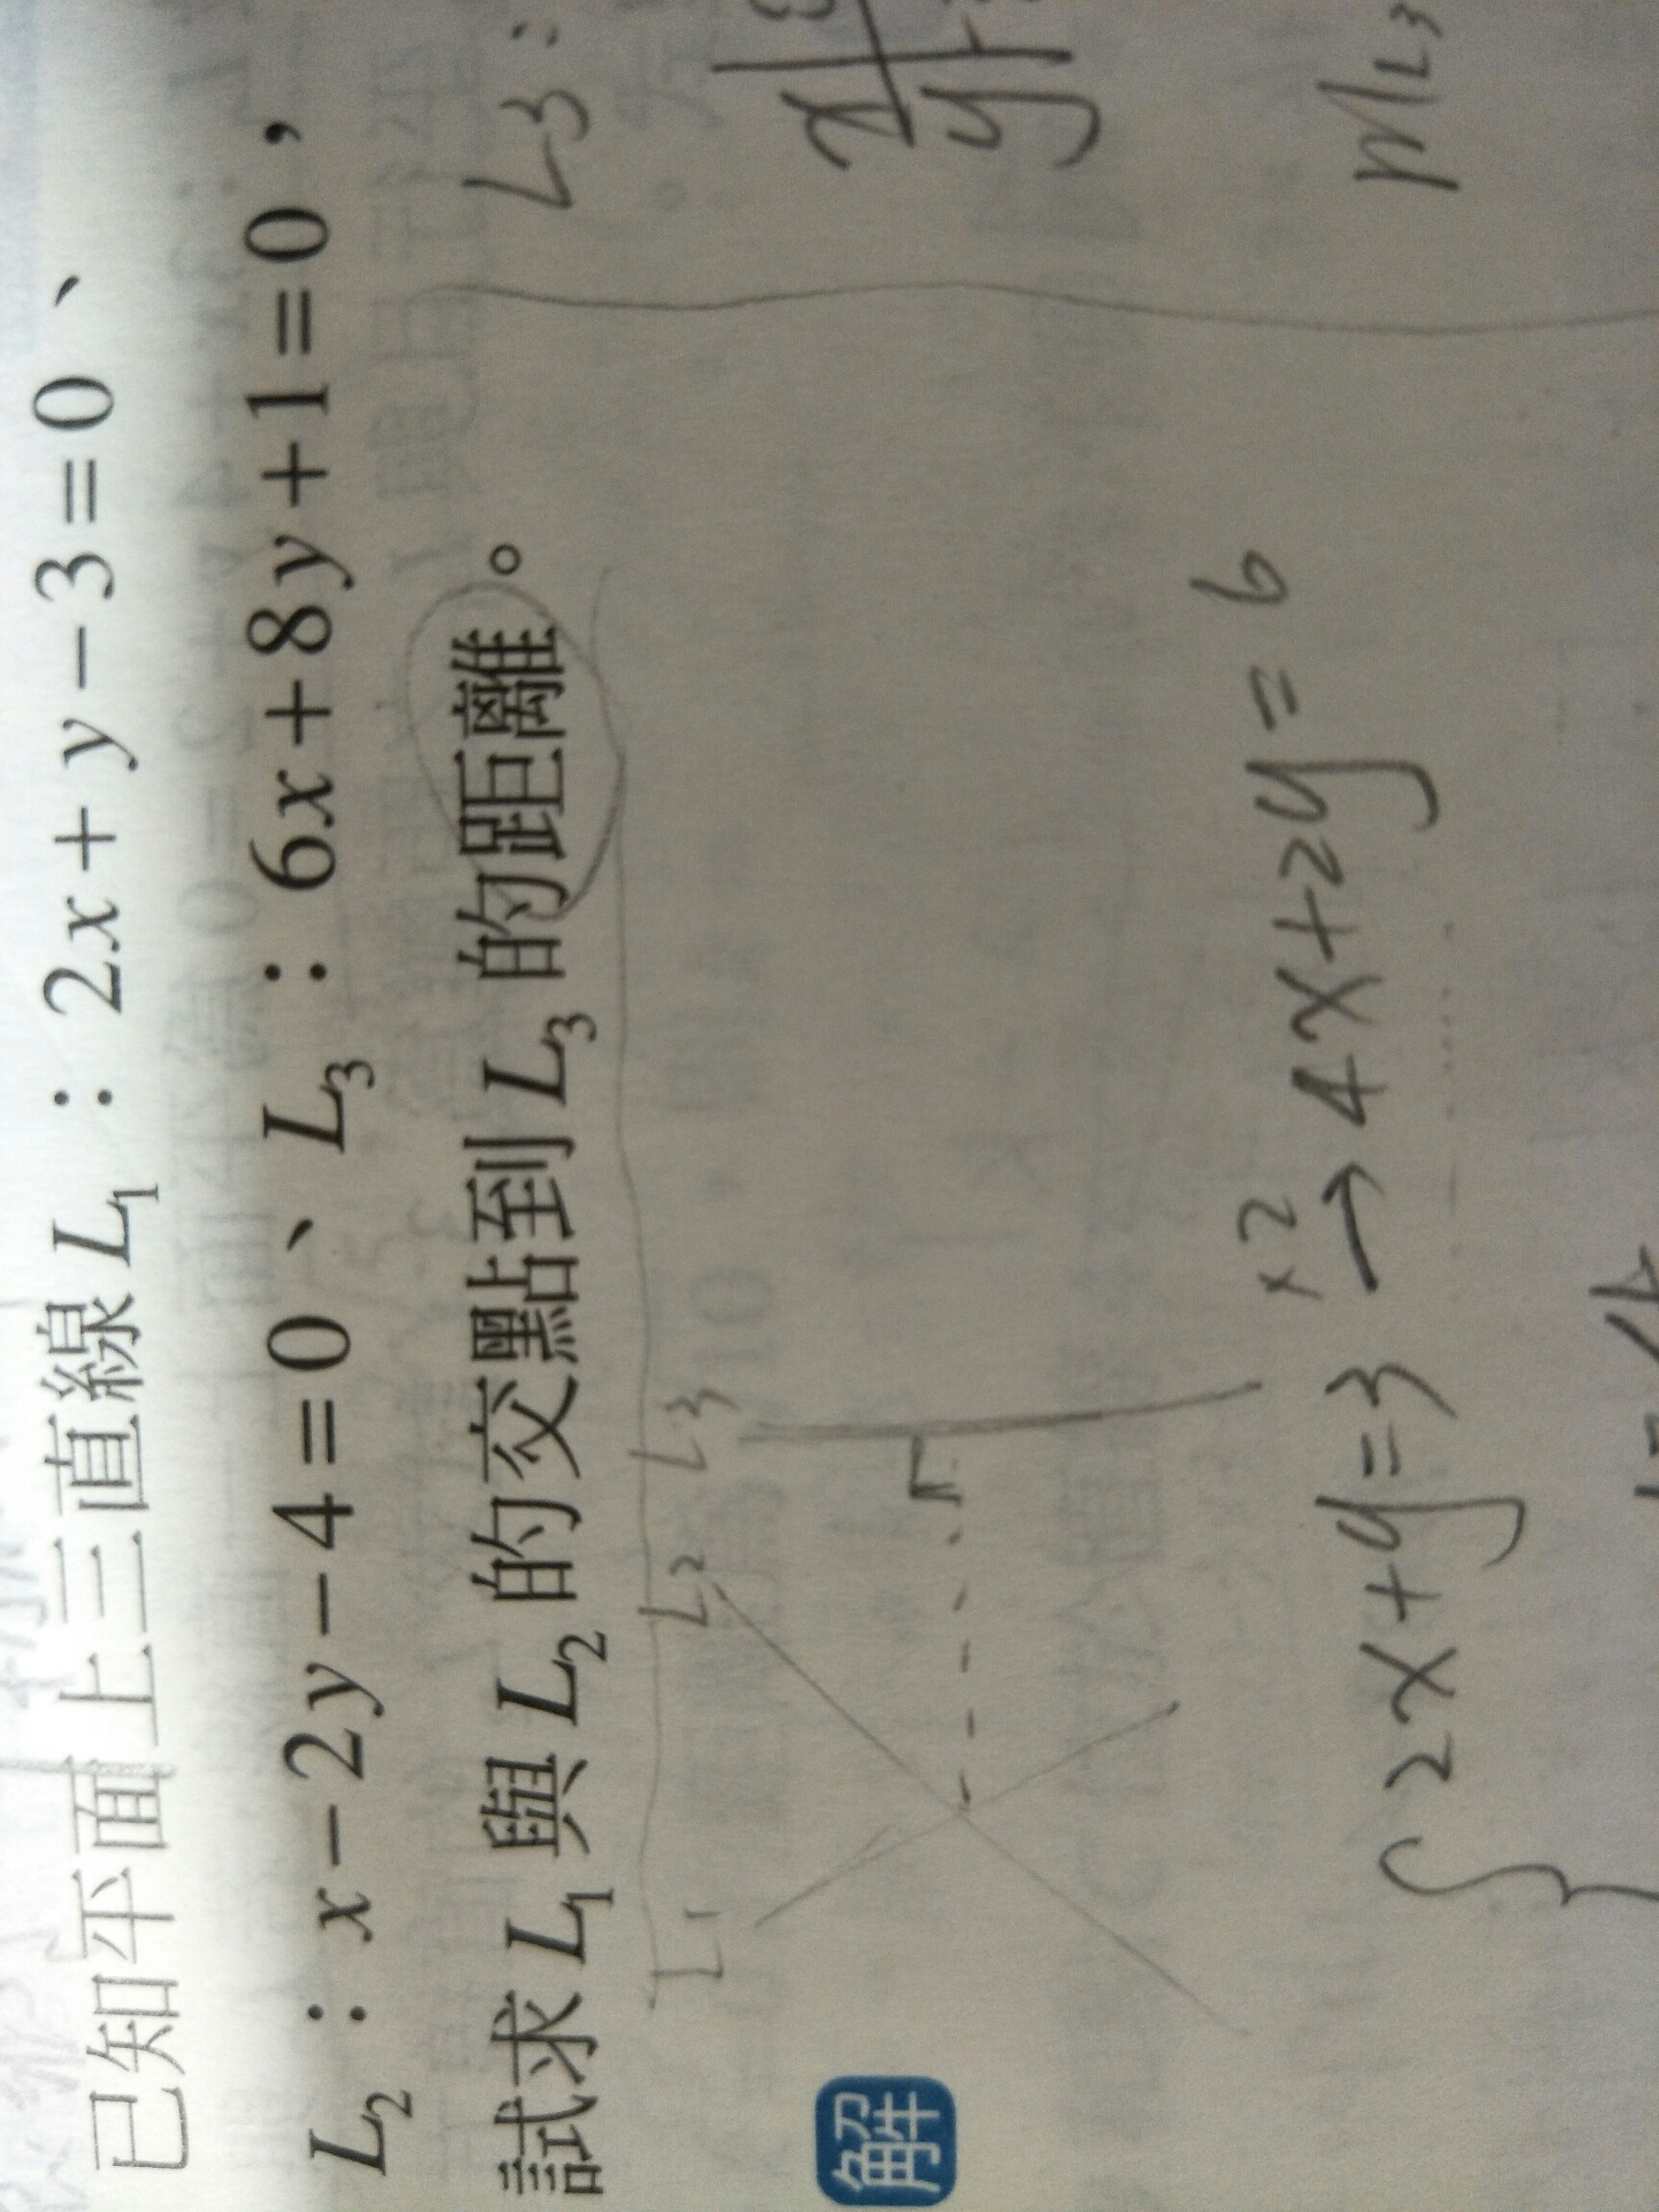 已知平面上三直線 L₁：2x+y−3=0、
L₂：x−2y−4=0、L₃：6x+8y+1=0，
試求 L₁ 與 L₂ 的交點到 L₃ 的距離。
L₁ L₂ L₃
解
2x+y=3 ×2→ 4x+2y=6
L3:
x
y
mL3